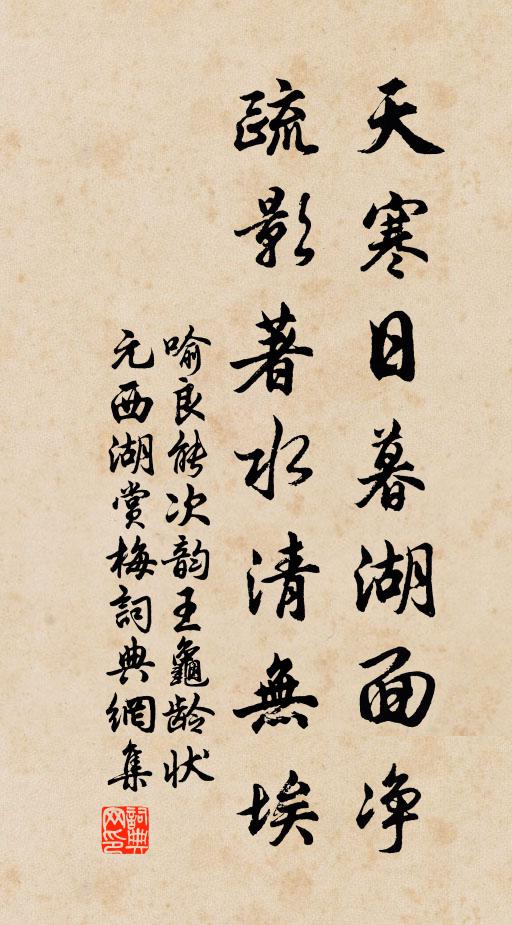 天寒日暮湖面净
疏影著水清無埃
喻良能次韵王龜龄状
元西湖赏梅詞典網集
詞典网印